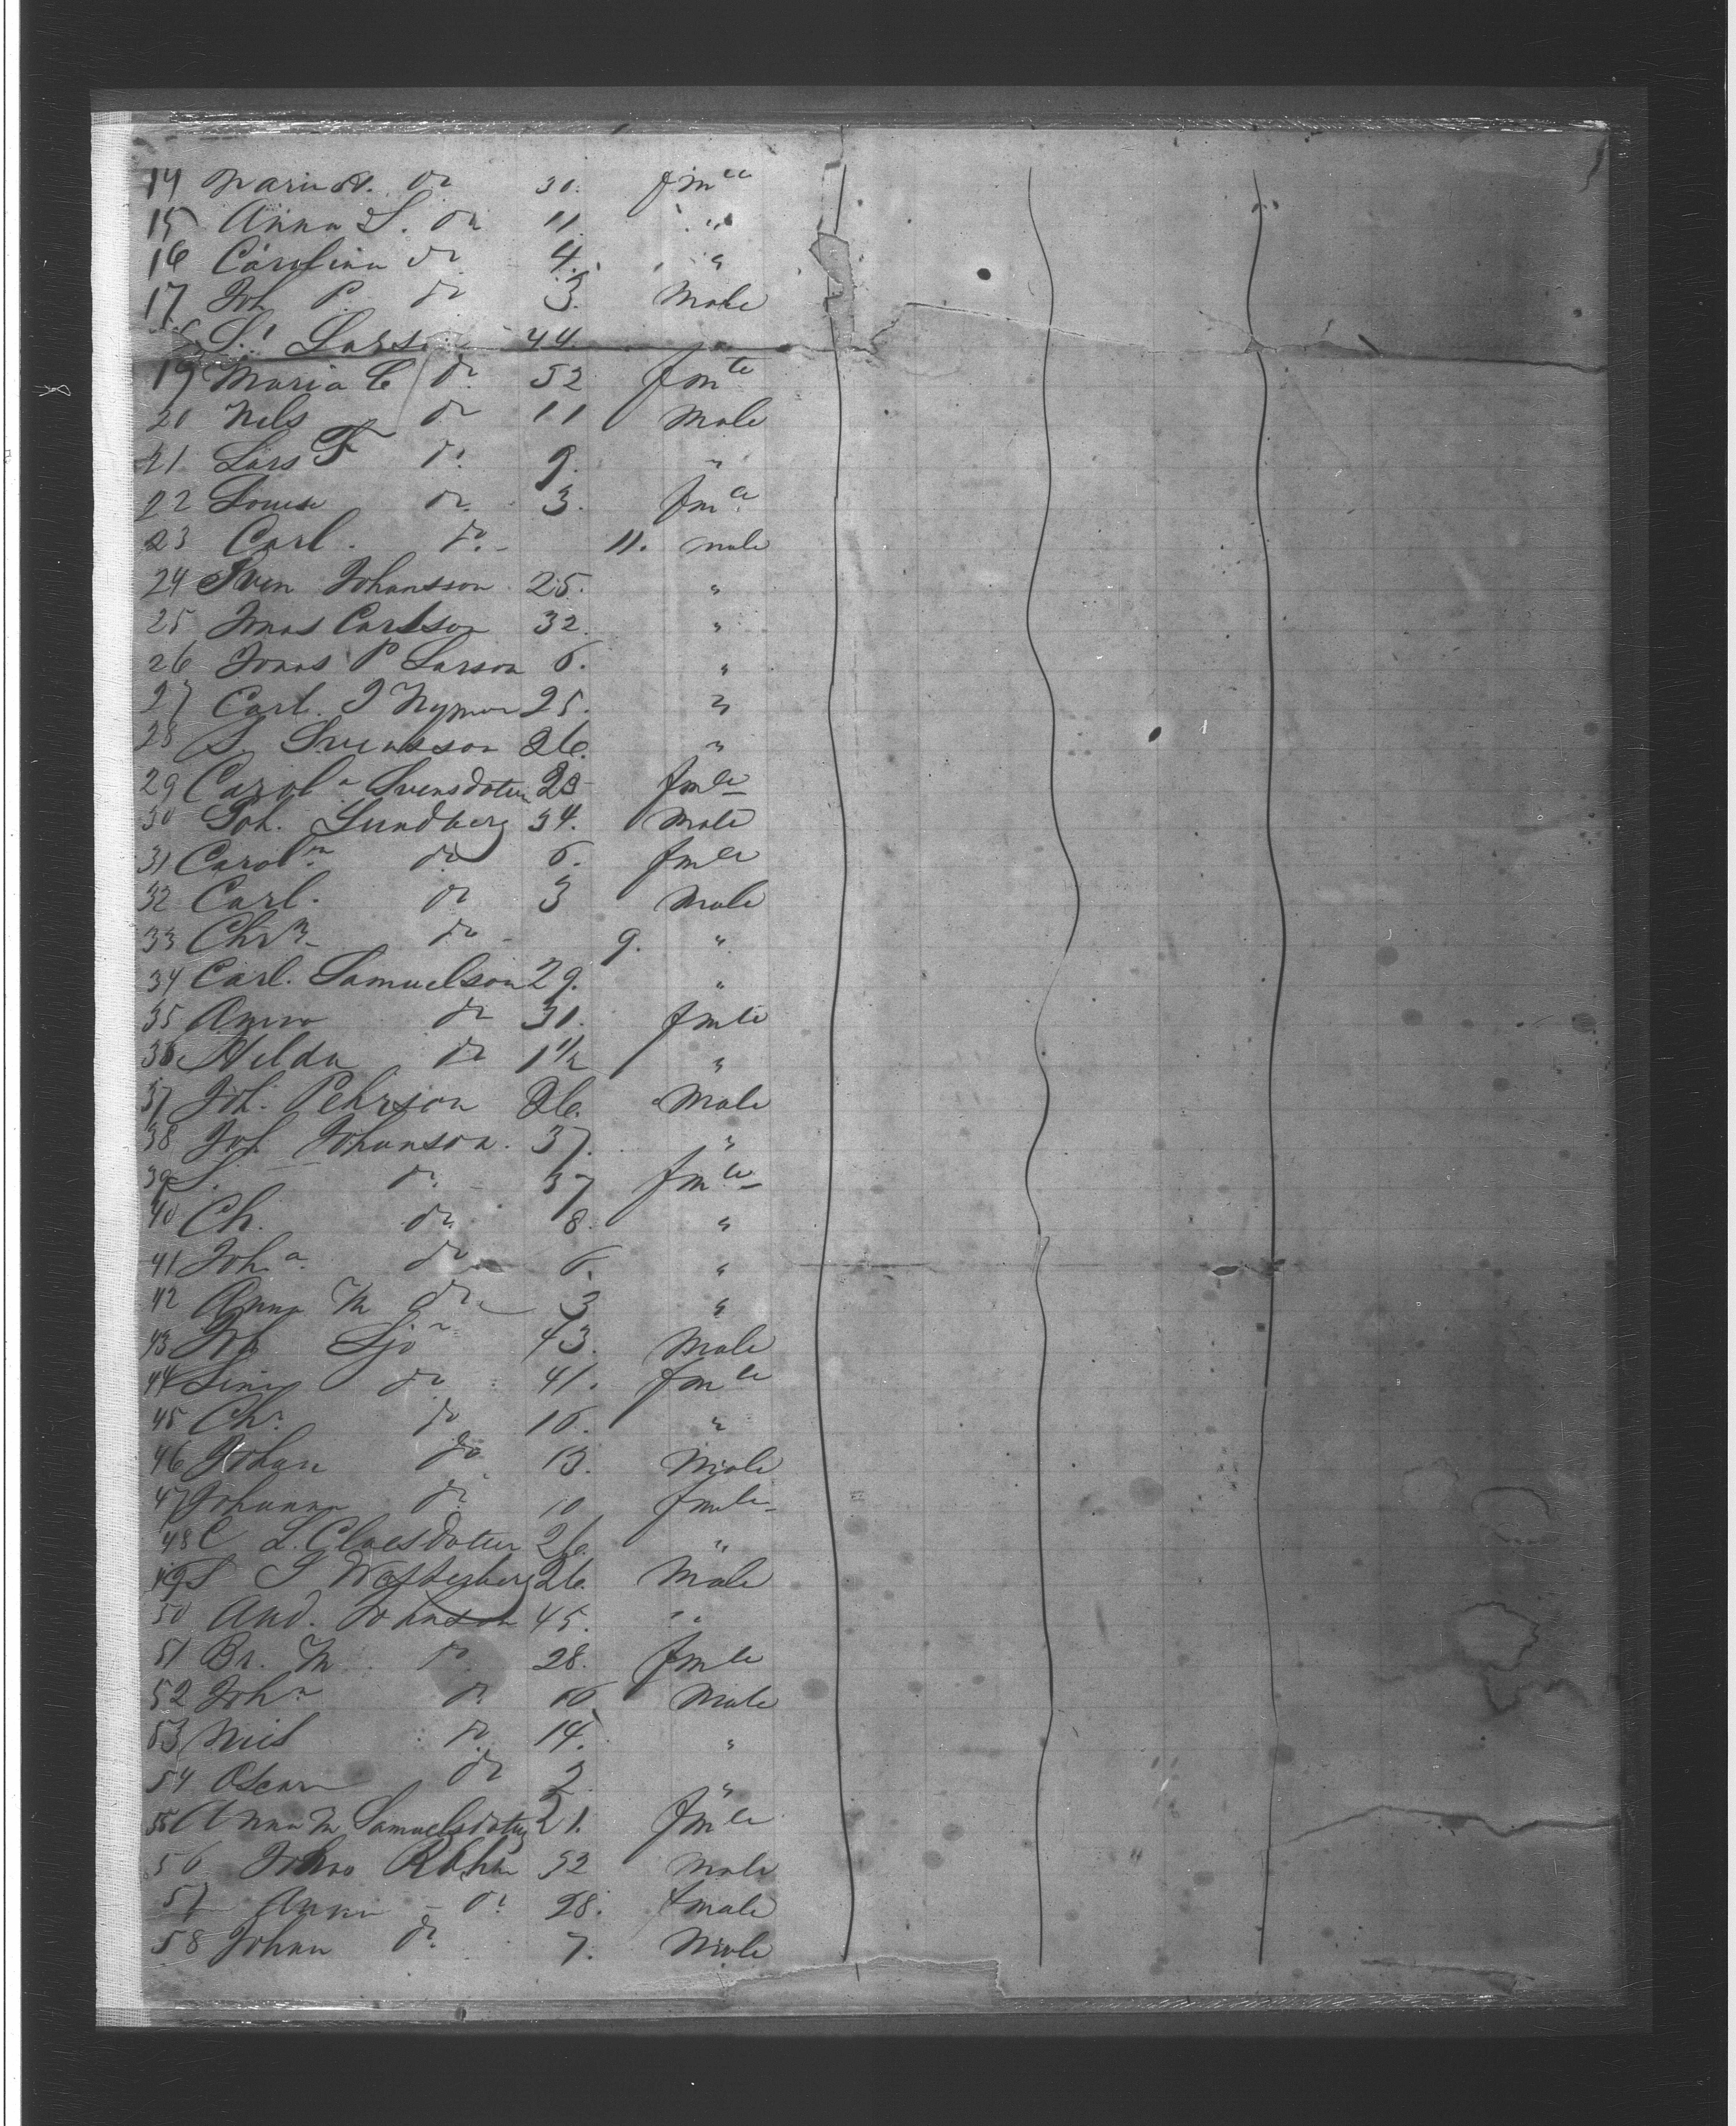 14 Maria A. do 30. fmle
15 Anna L. do 11. "
16 Carolina do 4. "
17 Joh P. do 3. Male
S. Larson 44 "
19 Maria C do 52 fmle
20 Nels do 11 Male
21 Lars F do 9. "
22 Louise do 3. fmle
23 Carl. do - 11. male
24 Sven Johansson 25. "
25 Jonas Carlson 32. "
26 Jonas P Larson 6. "
27 Carl. J Nyman 25. "
28 S. Svensson 26. "
29 Carola Svensdotter 23 fmle
30 Joh. Lundberg 34. Male
31 Carola do 6. fmle
32 Carl. do 3 Male
33 Chrn - do - 9. "
34 Carl. Samuelson 29. "
35 Anna do 31. fmle
36 Hilda do 1 1/2 "
37 Joh. Pehrson 26. Male
38 Joh Johanson. 37. "
39 S. do - 37 fmle
40 Ch. do 8. "
41 Joha do 6. "
42 Anna M do 3 "
43 Joh Sjo 43. Male
44 Lina do 41. fmle
45 Chr. do 16. "
46 Johan do 13. Male
47 Johanna do 10 fmle
48 C L. Claesdotter 26. "
49 S J Westerberg 26. Male
50 And. Johnson 45. "
51 Br. M. do 28. fmle
52 Joha do 16 Male
53 Niel do 14. "
54 Oscar do 2. "
55 Anna M Samuelsdotter 21. fmle
56 Johno 52 Male
57 Anna - do 28. fmale
58 Johan do 7. Male